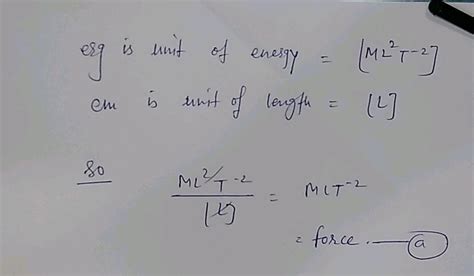 erg is unit of energy = [ML²T⁻²]
cm is unit of length = [L]
so ML²T⁻² / [L] = MLT⁻²
= force. — (a)